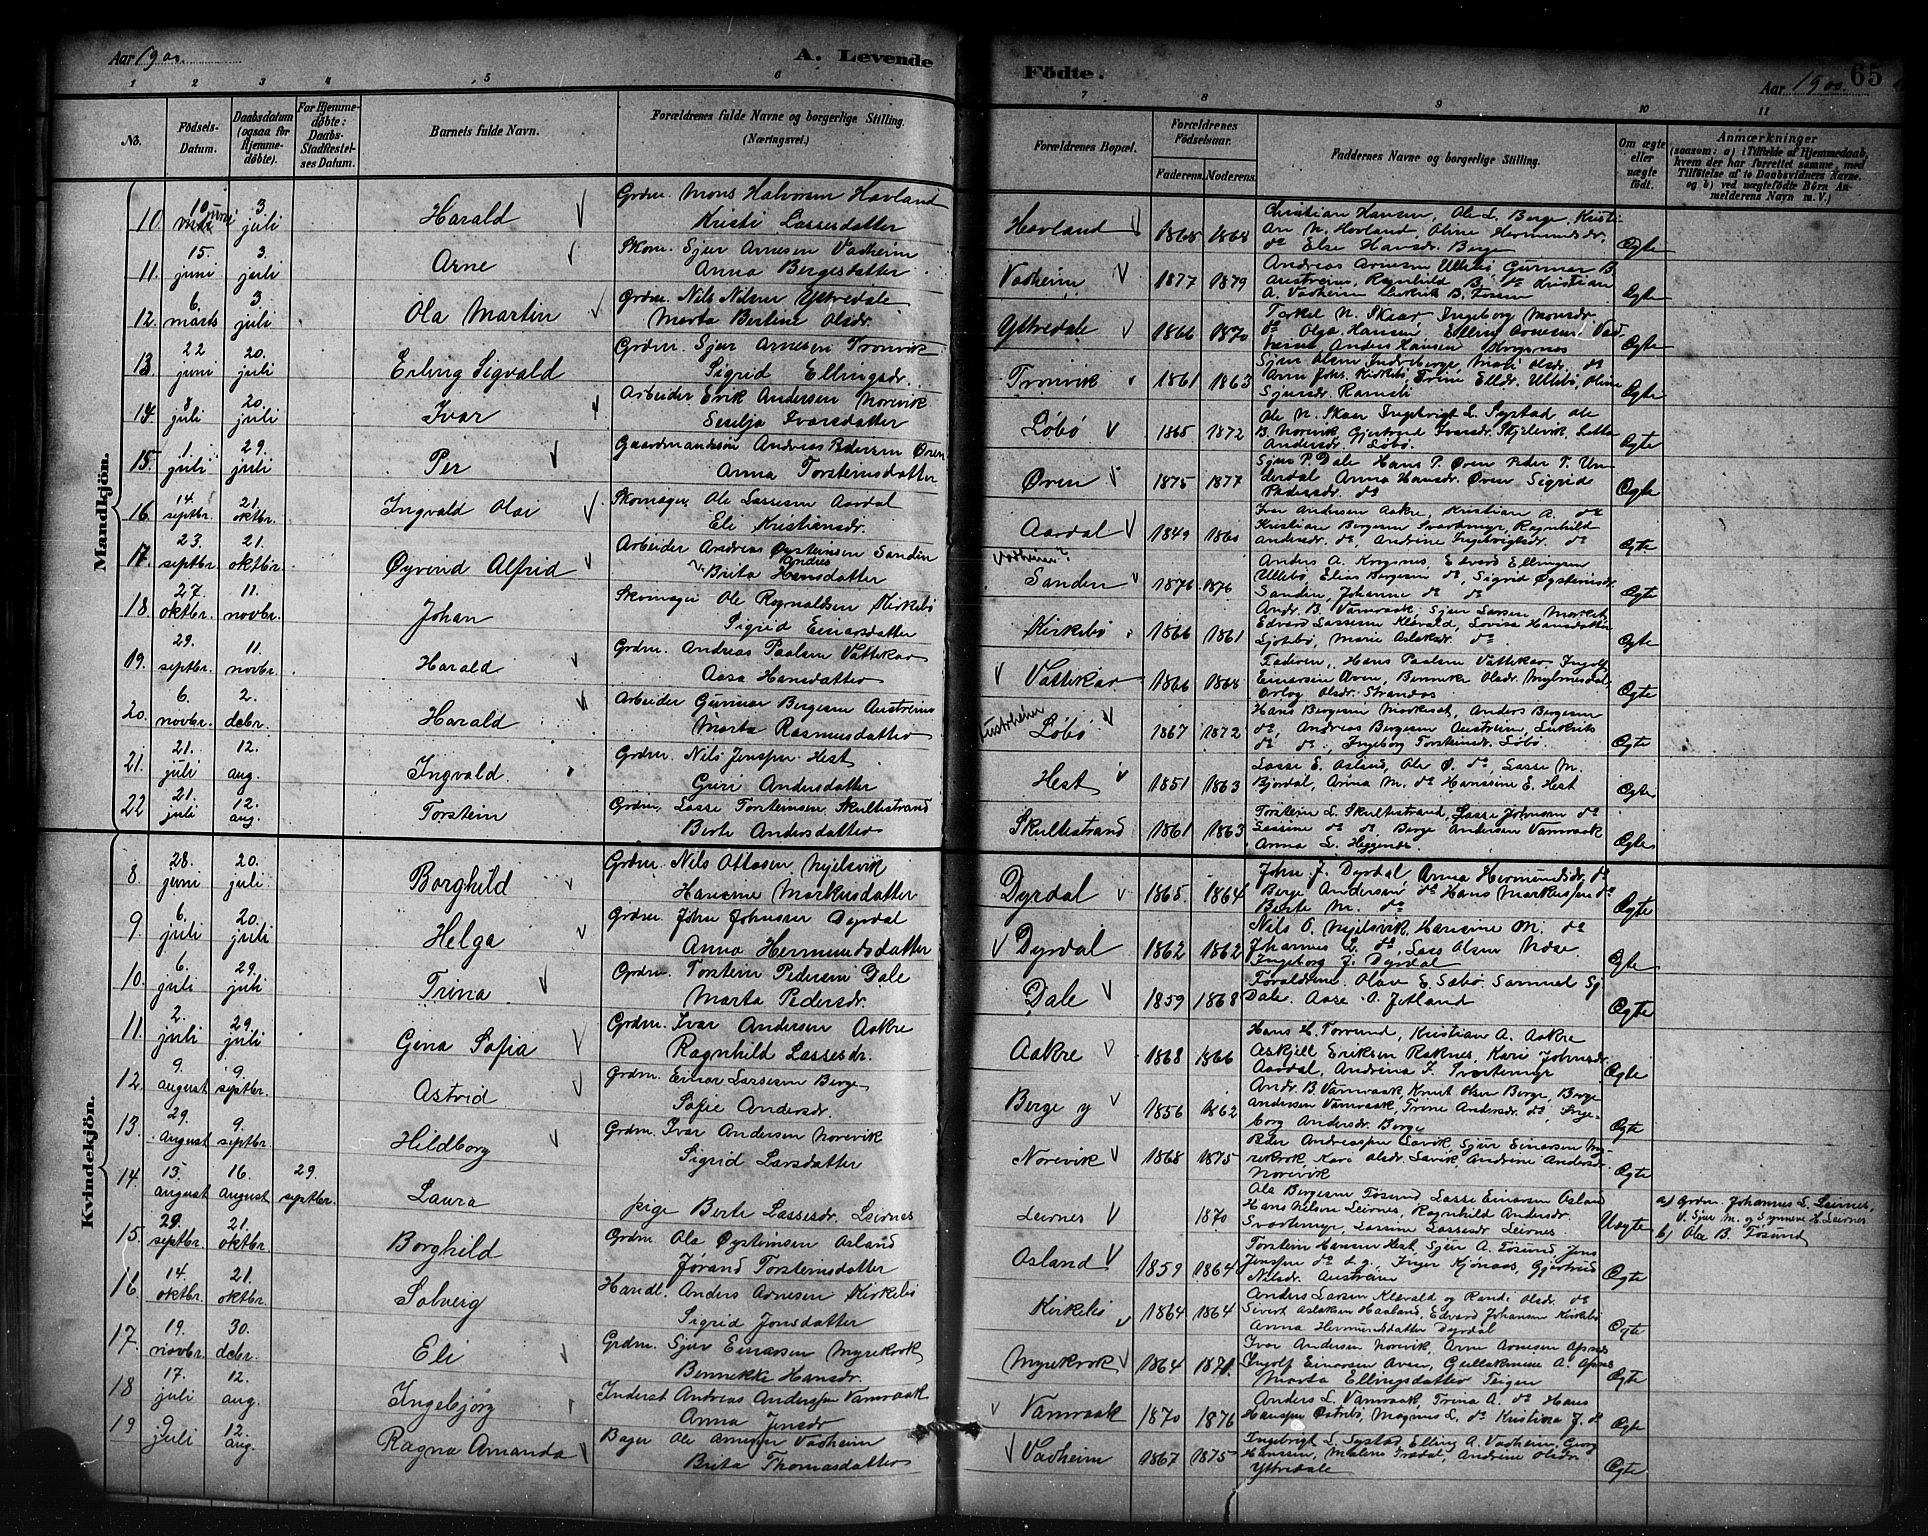 Aar 1900.
A. Levende
Födte.
65
Aar 1900.
1 2 3 4 5 6 7 8 9 10 11
No.
Födsels-Datum.
Daabsdatum (ogsaa for Hjemmedøbte).
For Hjemmedøbte: Daabs-Stadfæstelses Datum.
Barnets fulde Navn.
Forældrenes fulde Navne og borgerlige Stilling. (Næringsvei.)
Forældrenes Bopæl.
Forældrenes Födselsaar.
Faderens. Moderens.
Faddernes Navne og borgerlige Stilling.
Om ægte eller uægte födt.
Anmærkninger
(saasom: a) i Tilfælde af Hjemmedaab, hvem der har forrettet samme, med Tilföielse af to Daabsvidners Navne. og b) ved uægtefödte Börn Anmelderens Navn m. V.)
Mandkjön.
10. 10 juni 3. juli Harald Grdm. Mons Halvorsen Hovland
Kristi Lassesdatter Hovland 1868 1868 Ægte
Christian Hansen, Ole L. Berge, Kristian N. Hovland, Oline Hermundsdr. do Else Hansdr. Berge
11. 15. juni 3. juli Arne Skom. Sjur Arnesen Vadheim
Anna Bergesdatter Vadheim 1877 1879 Ægte
Andreas Arnesen Ullebö Gunnar B. Austreim, Ragnhild B. do Kristian A. Vadheim
12. 6. marts 3 juli Ola Martin Grdm. Nils Nilsen Yttredale
Marta Bertine Olsdr. Yttredale 1866 1870 Ægte
Torkel N. Skaar Ingeborg Monsdr. do Olga Hansen, Elling Arnesen Vadheim Anders Hansen
13. 22 juni 20. juli Erling Sigvald Grdm. Sjur Arnesen Tronvik
Sigrid Ellingsdr. Tronvik 1861 1863 Ægte
Sjur Olsen Indreberge, Mali Olsdr. do
Trine Elldr. Ullebö, Oline Sjursdr.
14. juli 20. juli Ivar Arbeider Erik Andersen Norevik
Ivarsdatter Löbö 1865 1872 Ægte
Ole N. Skaar Ingebrigt L. Systad Ole B. Norevik Gjertrud Ivarsdr. Andersdr. Löbö.
15. 1. juli 29. juli Per Gaardmandssön Andreas Pedersen Øren
Anna Torsteinsdatter Øren 1875 1877 Ægte
Sjur P. Dale Hans P. Øren Peder T. Underdal Anna Hansdr. Øren Sigrid Pedersdr. do
16. 14. septbr. 21. oktbr. Ingvald Olai Skomager Ole Lassesen Aardal
Eli Kristiansdr. Aardal 1849 1860 Ægte
Ivar Andersen Aakre, Kristian A. do Kristian Bergesen Svartemyr, Ragnhild Andersdr. do, Andrine Ingebrigtsdr. do
17. 23. septbr. 21. oktbr. Øyvind Alfred Arbeider Andreas Øysteinsen Sanden
Brita Hansdatter Vadheim? Sanden 1876 1876 Ægte
Anders A. Krogsnes, Edvard Ellingsen Ullebö, Elias Bergesen do, Sigrid Øysteinsdr. Sanden, Johanne do do
18. 27. oktbr. 11. novbr. Johan Skomager Ole Ragnaldsen Kirkebö
Sigrid Einarsdatter Kirkebö 1866 1861 Ægte
Andr. B. Vamraak, Sjur Larsen
Edvard Lassesen Klævald, Lovise Hansdatter Marie Aslaksdr. do
19. 29. septbr. 11. novbr. Harald Grdm. Andreas Paalsen Vattekar
Aasa Hansdatter Vattekar 1866 1868 Ægte
Faderen, Hans Paalsen Vattekar Ingolf Einarsen Aven, Bennike Olsdr.
Olsdr. Strandos
20. 6. novbr. 2. debr. Harald Arbeider Gunnar Bergesen Austreim
Marta Rasmusdatter Austrheim Löbö 1867 1872 Ægte
Hans Bergesen Anders Bergesen do, Andreas Bergesen Austreim, do do, Ingeborg Torsteinsdr. Löbö.
21. 21. juli 12. aug. Ingvald. Grdm. Nils Jenssen Hest
Guri Andersdatter Hest 1851 1863 Ægte
Lasse E. Asland, Ole Ø. do Lasse M. Bjordal, Anna M. do Hanssine E. Hest
22 21. juli 12. aug. Torstein Grdm. Lasse Torsteinsen Skultestrand
Berte Andersdatter Skultestrand 1861 1863 Ægte
Torstein L. Skultestrand, Lasse Johnsen do Lassine do do Berge Andersen Vamraak Anna L. Heggenes
Kvindekjön.
8. 28. juni 20. juli Borghild Grdm. Nils Ottosen Mjelsvik
Hansine Markusdatter Dyrdal 1865 1864 Ægte
John J. Dyrdal, Anna Hermundsdr. do Berge Andersen do Hans Markussen do Berte M. do
9. 6. juli 20. juli Helga Grdm. John Johnsen Dyrdal
Anna Hermundsdatter Dyrdal 1862 1862 Ægte
Nils O. Mjelsvik, Hansine M. do Johannes L. do, Lars Olsen Næse Ingeborg J. Dyrdal
10. 6. juli 29. juli Trina Grdm. Torstein Pedersen Dale
Marta Pedersdr. Dale 1859 1868 Ægte
Forældrene. Olav E. Sæbö Samuel Sj. Dale. Aase O. Jetland
11. 2. juli 29. juli Gina Sofia Grdm. Ivar Andersen Aakre
Ragnhild Lassesdr. Aakre 1868 1866 Ægte
Hans H. Torvund, Kristian A. Aakre Askjell Eriksen Raknes, Kari Johnsdr. Aardal, Andrina I. Svartemyr
12. 9. august 9. septbr. Astrid Grdm. Einar Lassesen Berge
Sofie Andersdr. Berge y 1856 1862 Ægte
Andr. B. Vamraak, Knut Olsen Berge, Berge Andersen Vamraak, Trine Andersdr. do, Ingeborg Andersdr. Berge
13. 29. august 9. septbr. Hildborg Grdm. Ivar Andersen Norevik
Sigrid Larsdatter Norevik 1868 1875 Ægte
Peder Andreassen Lavik, Sjur Einarsen Myrekrok Kari Olsdr. Lavik Andrine Andersdr. Norevik
14. 15. august 16. august 29. septbr. Laura pige Berte Lassesdr. Leirnes
Leirnes 1870 Uægte
Ole Bergesen Tösund Lasse Einarsen Osland Hans Nilsen Leirnes, Ragnhild Andersdr. Svartemyr, Lassine Lassesdr. Leirnes
a) Grdm. Johannes L. Leirnes, V. Sjur M. og Synneve H. Leirnes
b) Ole B. Tösund
15. 29. septbr. 21. oktbr. Borghild Grdm. Ole Øysteinsen Osland
Jörand Torsteinsdatter Osland 1859 1864 Ægte
Torstein Hansen Hest, Sjur A. Tösund, Jens Jenssen do Inger Kjönaas, Gjertrud Nilsdr. Austreim
16. 14. oktbr. 21. oktbr. Solveig Handl. Anders Arnesen Kirkebö
Sigrid Jonsdatter Kirkebö 1864 1864 Ægte
Anders Larsen Klævald og Randi Olsdr. do Sivert Aslaksen Haaland, Edvard Johansen Kirkebö Anna Hermundsdatter Dyrdal
17. 19. novbr. 30. debr. Eli Grdm. Sjur Einarsen Myrekrok
Bennikke Hansdr. Myrekrok 1864 1871. Ægte
Ivar Andersen Norevik, Arne Arnesen Apnes Ingolf Einarsen Aven, A. Apnes Marta Ellingsdatter Teigen
18 17. juli 12. aug. Ingebjörg Inderst Andreas Anderssen Vamraak
Anna Jensdr Vamraak 1870 1876 Ægte
Anders L. Vamraak, Trina A. do Hans Hanssen Östrebö, Magnus L. do Kristina J. do
19 9 juli 12. aug. Ragna Amanda Bager Ole Arnesen Vadheim
Brita Thomasdatter Vadheim 1867 1875 Ægte
Ingebrigt L. Systad, Elling A. Vadheim, Georg Hanssen, Malene Andrine Olsdr. Yttredale